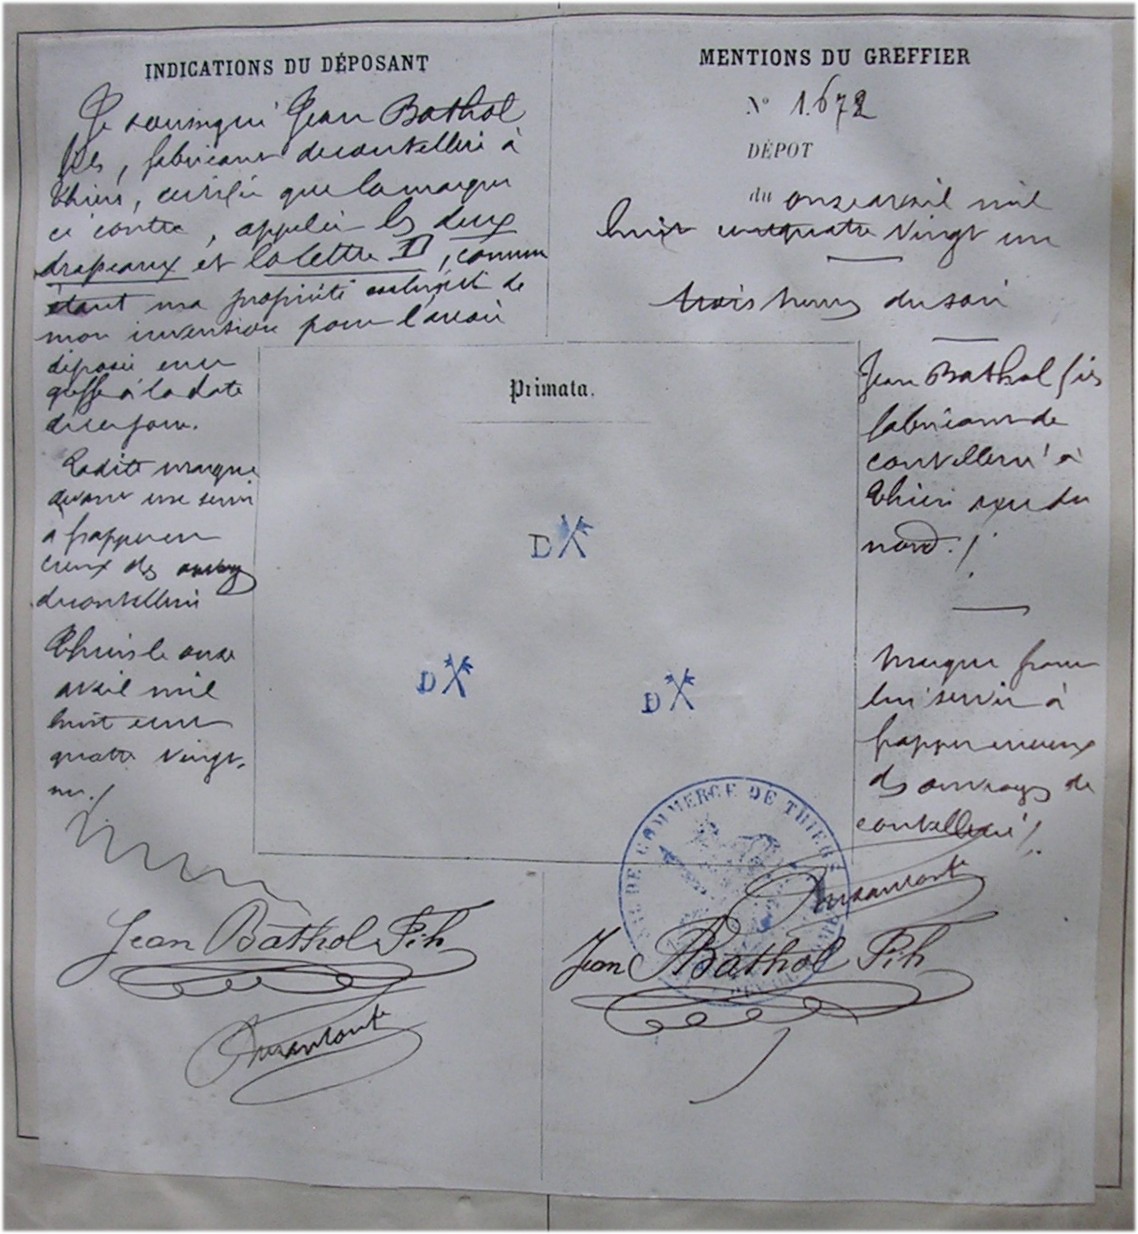 INDICATIONS DU DÉPOSANT
Je soussigné Jean Bathol
fils, fabricant de coutellerie à
Thiers, certifie que la marque
ci contre, appelée les deux
drapeaux et la lettre D, comme
étant ma propriété de
mon invention pour l'avoir
déposée en ce
greffe à la date
de ce jour.
Ladite marque
devant me servir
à frapper en
creux des ouvrages
de coutellerie
Thiers le onze
avril mil
huit cent
quatre vingt
un./
Jean Bathol Fils
MENTIONS DU GREFFIER
N° 1.672
DÉPOT
du onze avril mil
huit cent quatre vingt un
trois heures du soir
Primata.
D
D
D
Jean Bathol fils
fabricant de
coutellerie à
Thiers rue du
nord./
Marque pour
lui servir à
frapper en creux
des ouvrages de
coutellerie/.
DE COMMERCE DE THIERS
Jean Bathol Fils